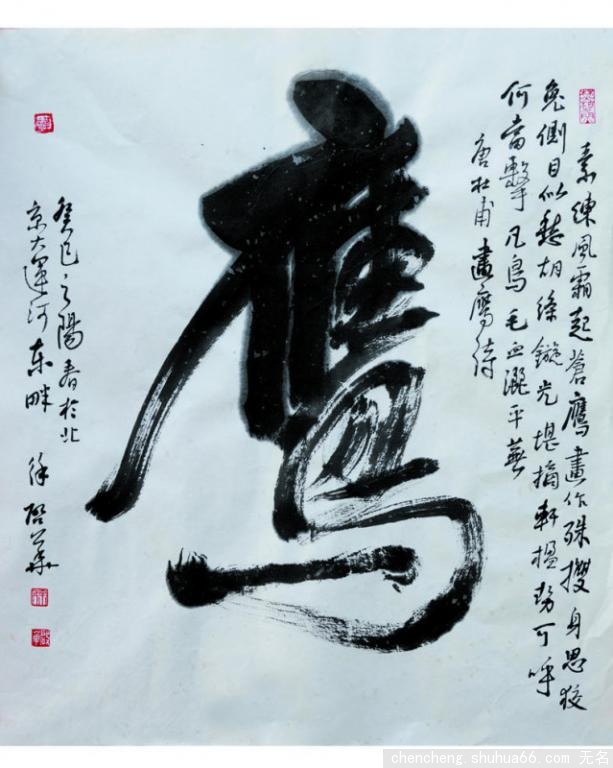 素練風霜起蒼鷹畫作殊㩳身思狡
兔側目似愁胡絛鏇光堪摘軒楹勢可呼
何當擊凡鳥毛血灑平蕪
唐杜甫畫鷹詩
鷹
癸巳之陽春於北
京大運河東畔 徐啓華
chencheng.shuhua66.com 无名